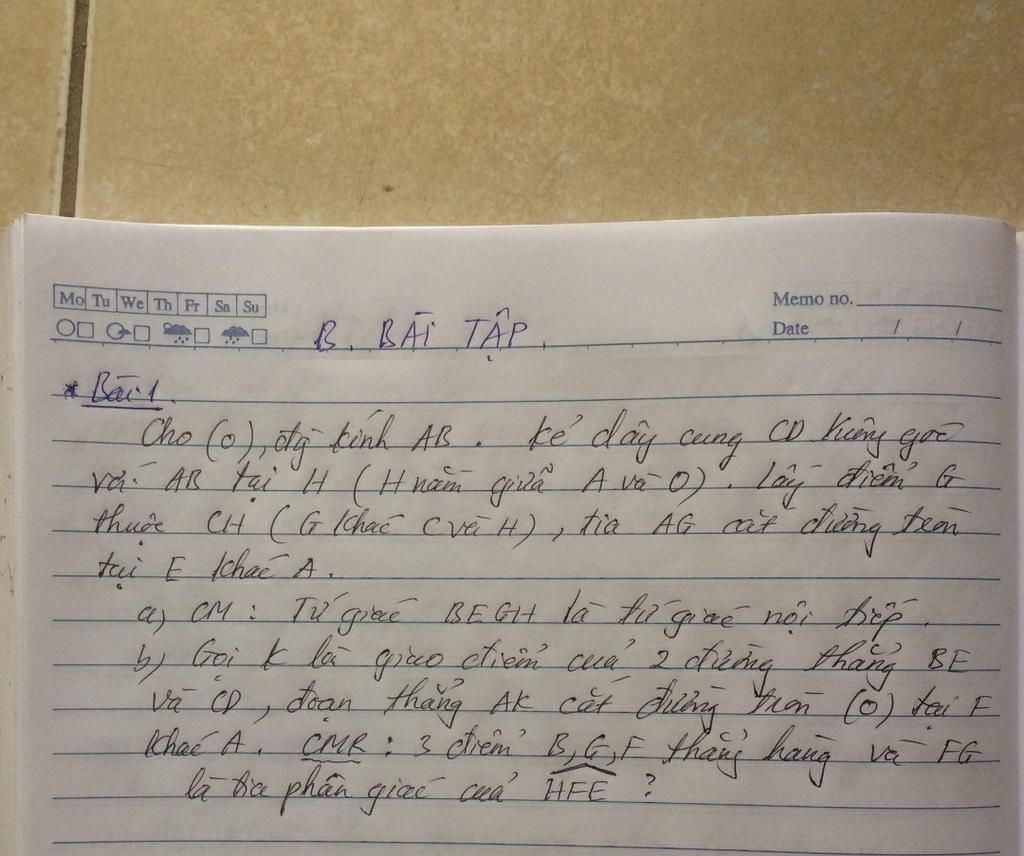 Mo Tu We Th Fr Sa Su
Memo no.
Date / /
B. BÀI TẬP.
* Bài 1.
Cho (O), đg kính AB. Kẻ dây cung CD vuông góc
với AB tại H (H nằm giữa A và O). Lấy điểm G
thuộc CH (G khác C và H), tia AG cắt đường tròn
tại E khác A.
a) CM: Tứ giác BEGH là tứ giác nội tiếp.
b) Gọi K là giao điểm của 2 đường thẳng BE
và CD, đoạn thẳng AK cắt đường tròn (O) tại F
khác A. CMR: 3 điểm B,G,F thẳng hàng và FG
là tia phân giác của HFE ?